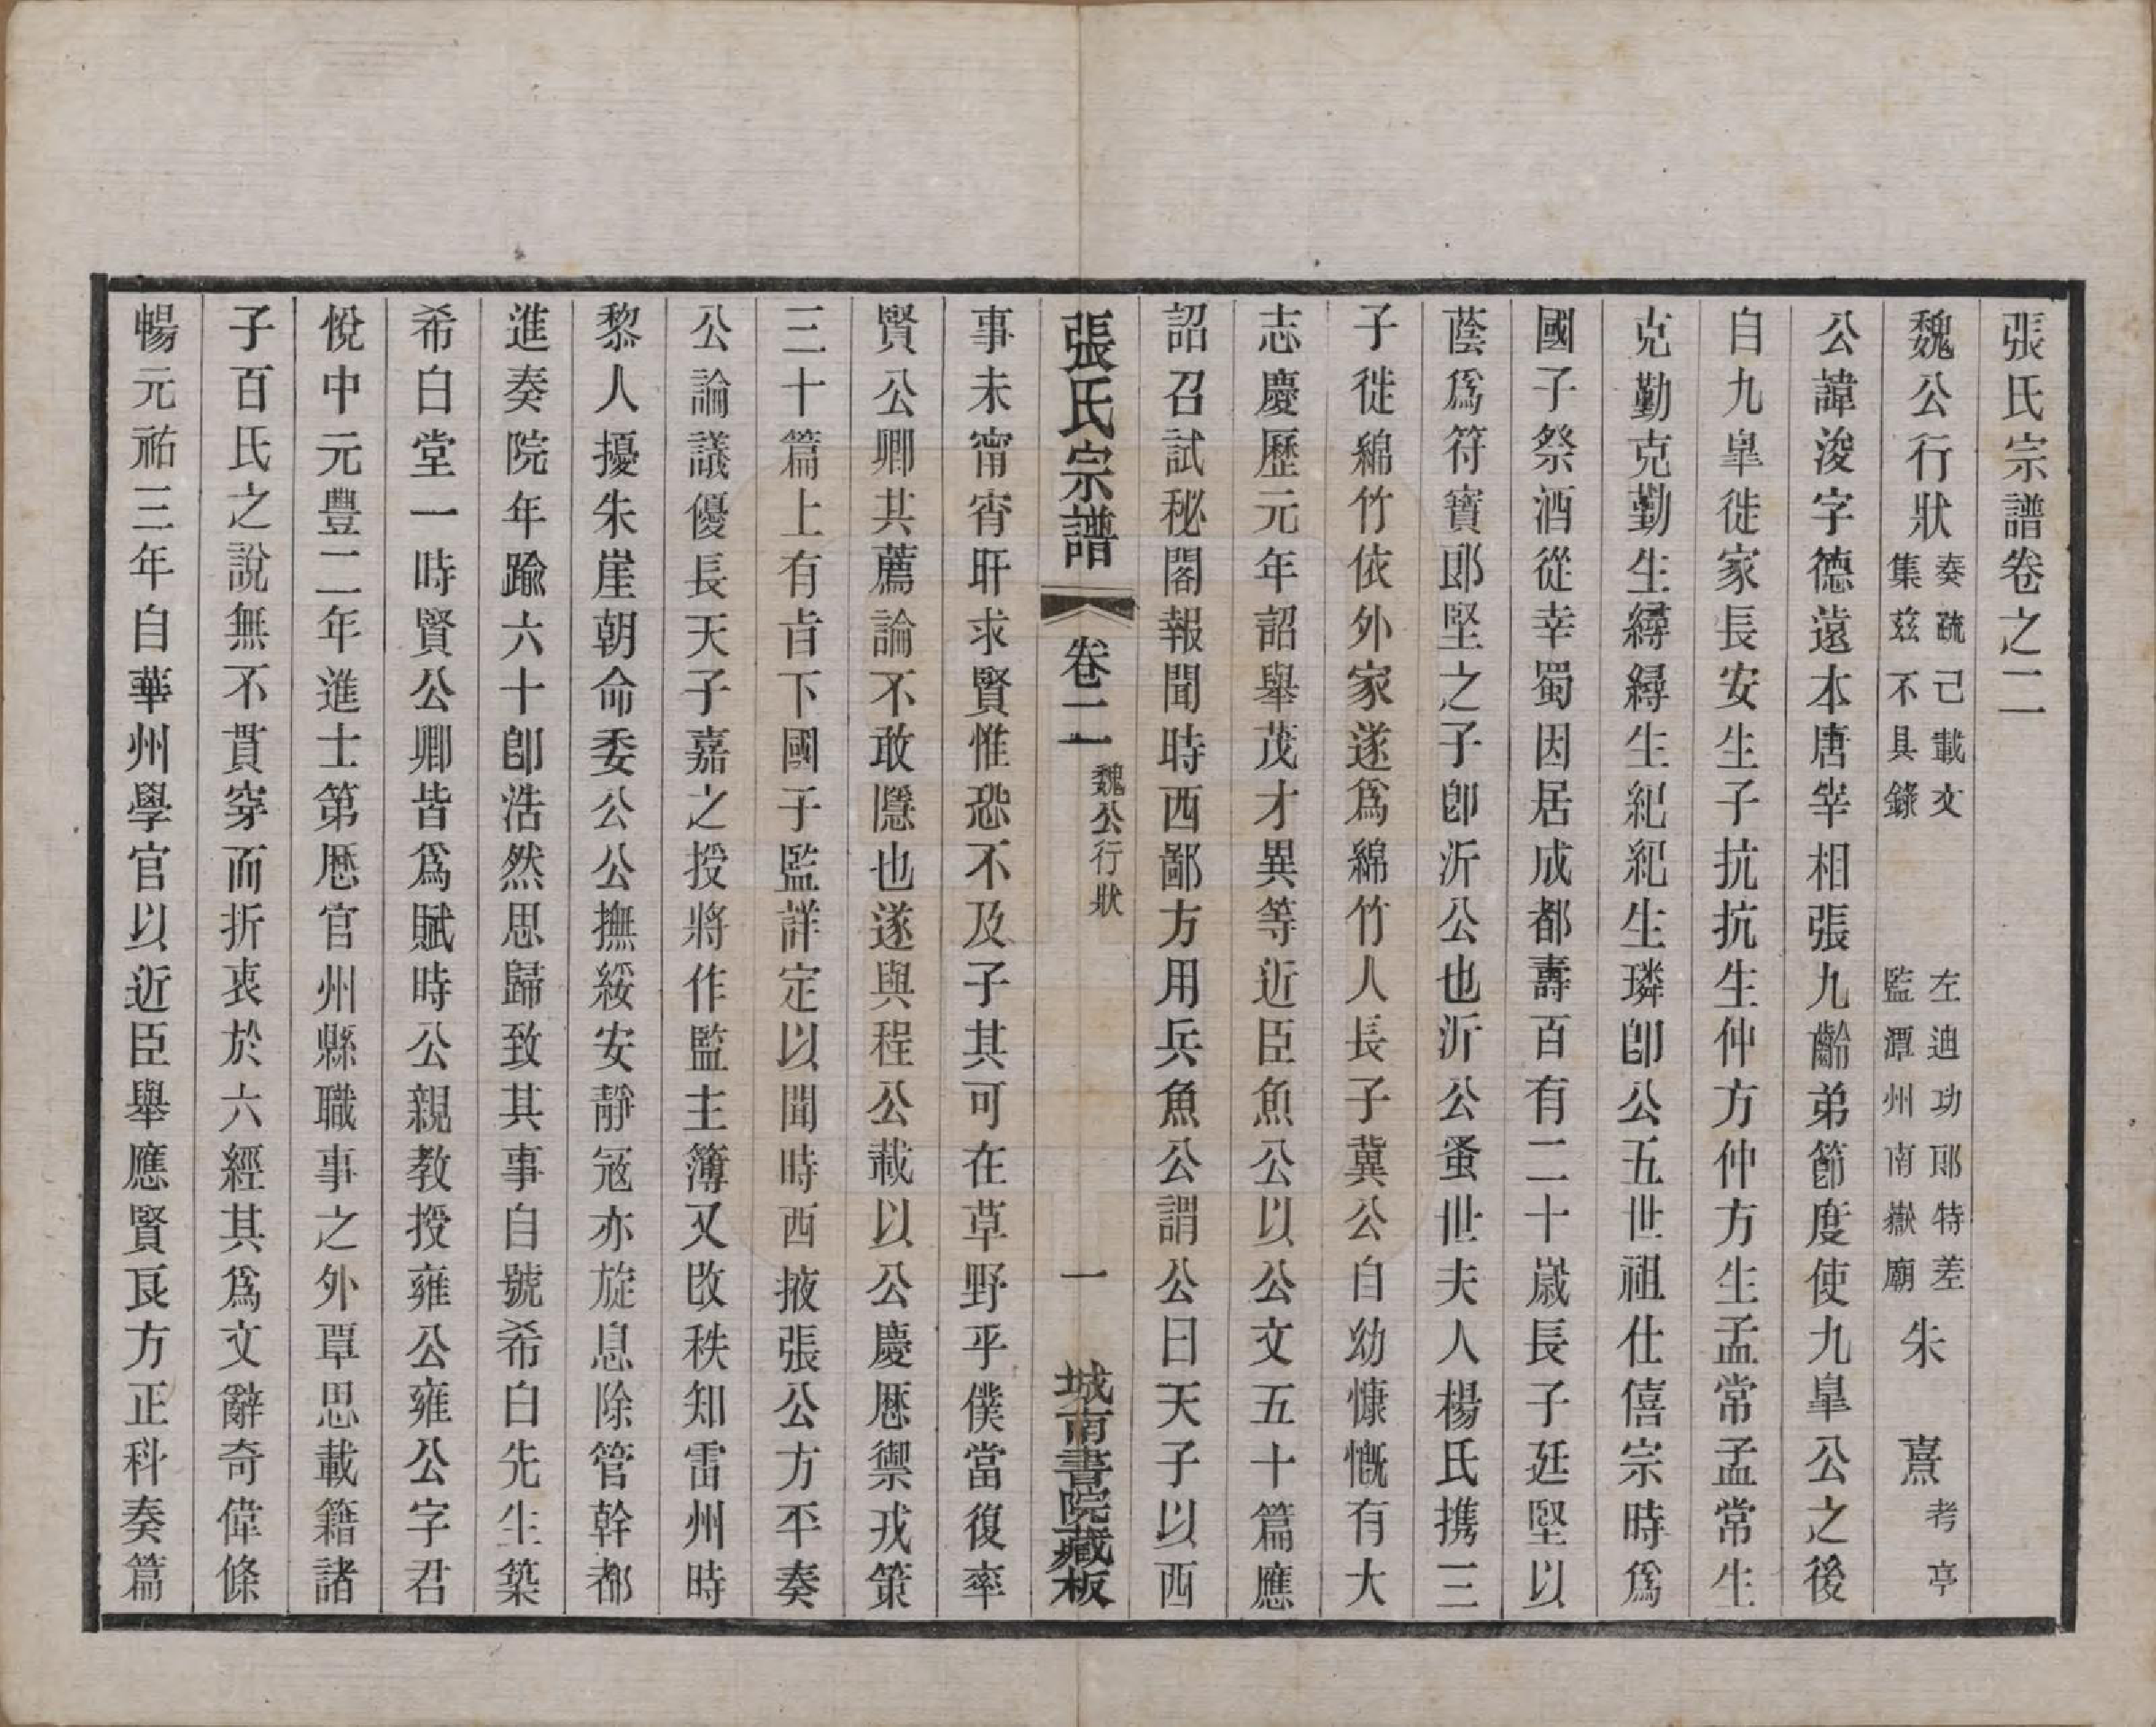 張氏宗譜卷之二
魏公行狀奏疏己載文集茲不具錄 左迪功郎特差監潭州南嶽廟朱熹考亭
公諱浚字德遠本唐宰相張九齡弟節度使九臯公之後
自九臯徙家長安生子抗抗生仲方仲方生孟常孟常生
克勤克勤生縟縟生紀紀生璘卽公五世祖仕僖宗時爲
國子祭酒從幸蜀因居成都壽百有二十歲長子廷堅以
蔭爲符寶郎堅之子卽沂公也沂公蚤世夫人楊氏携三
子徙綿竹依外家遂爲綿竹人長子冀公自幼慷慨有大
志慶歷元年詔舉茂才異等近臣魚公以公文五十篇應
詔召試秘閣報聞時西鄙方用兵魚公謂公曰天子以西
張氏宗譜 卷二 魏公行狀 一 城南書院藏板
事未甯宵旰求賢惟恐不及子其可在草野乎僕當復率
賢公卿其薦論不敢隱也遂與程公戡以公慶厯禦戎策
三十篇上有旨下國子監詳定以聞時西掖張公方平奏
公論議優長天子嘉之授將作監主簿又改秩知雷州時
黎人擾朱崖朝命委公公撫綏安靜寇亦旋息除管幹都
進奏院年踰六十卽浩然思歸致其事自號希白先生築
希白堂一時賢公卿皆爲賦時公親教授雍公雍公字君
悅中元豐二年進士第厯官州縣職事之外覃思載籍諸
子百氏之說無不貫穿而折衷於六經其爲文辭奇偉條
暢元祐三年自華州學官以近臣舉應賢良方正科奏篇